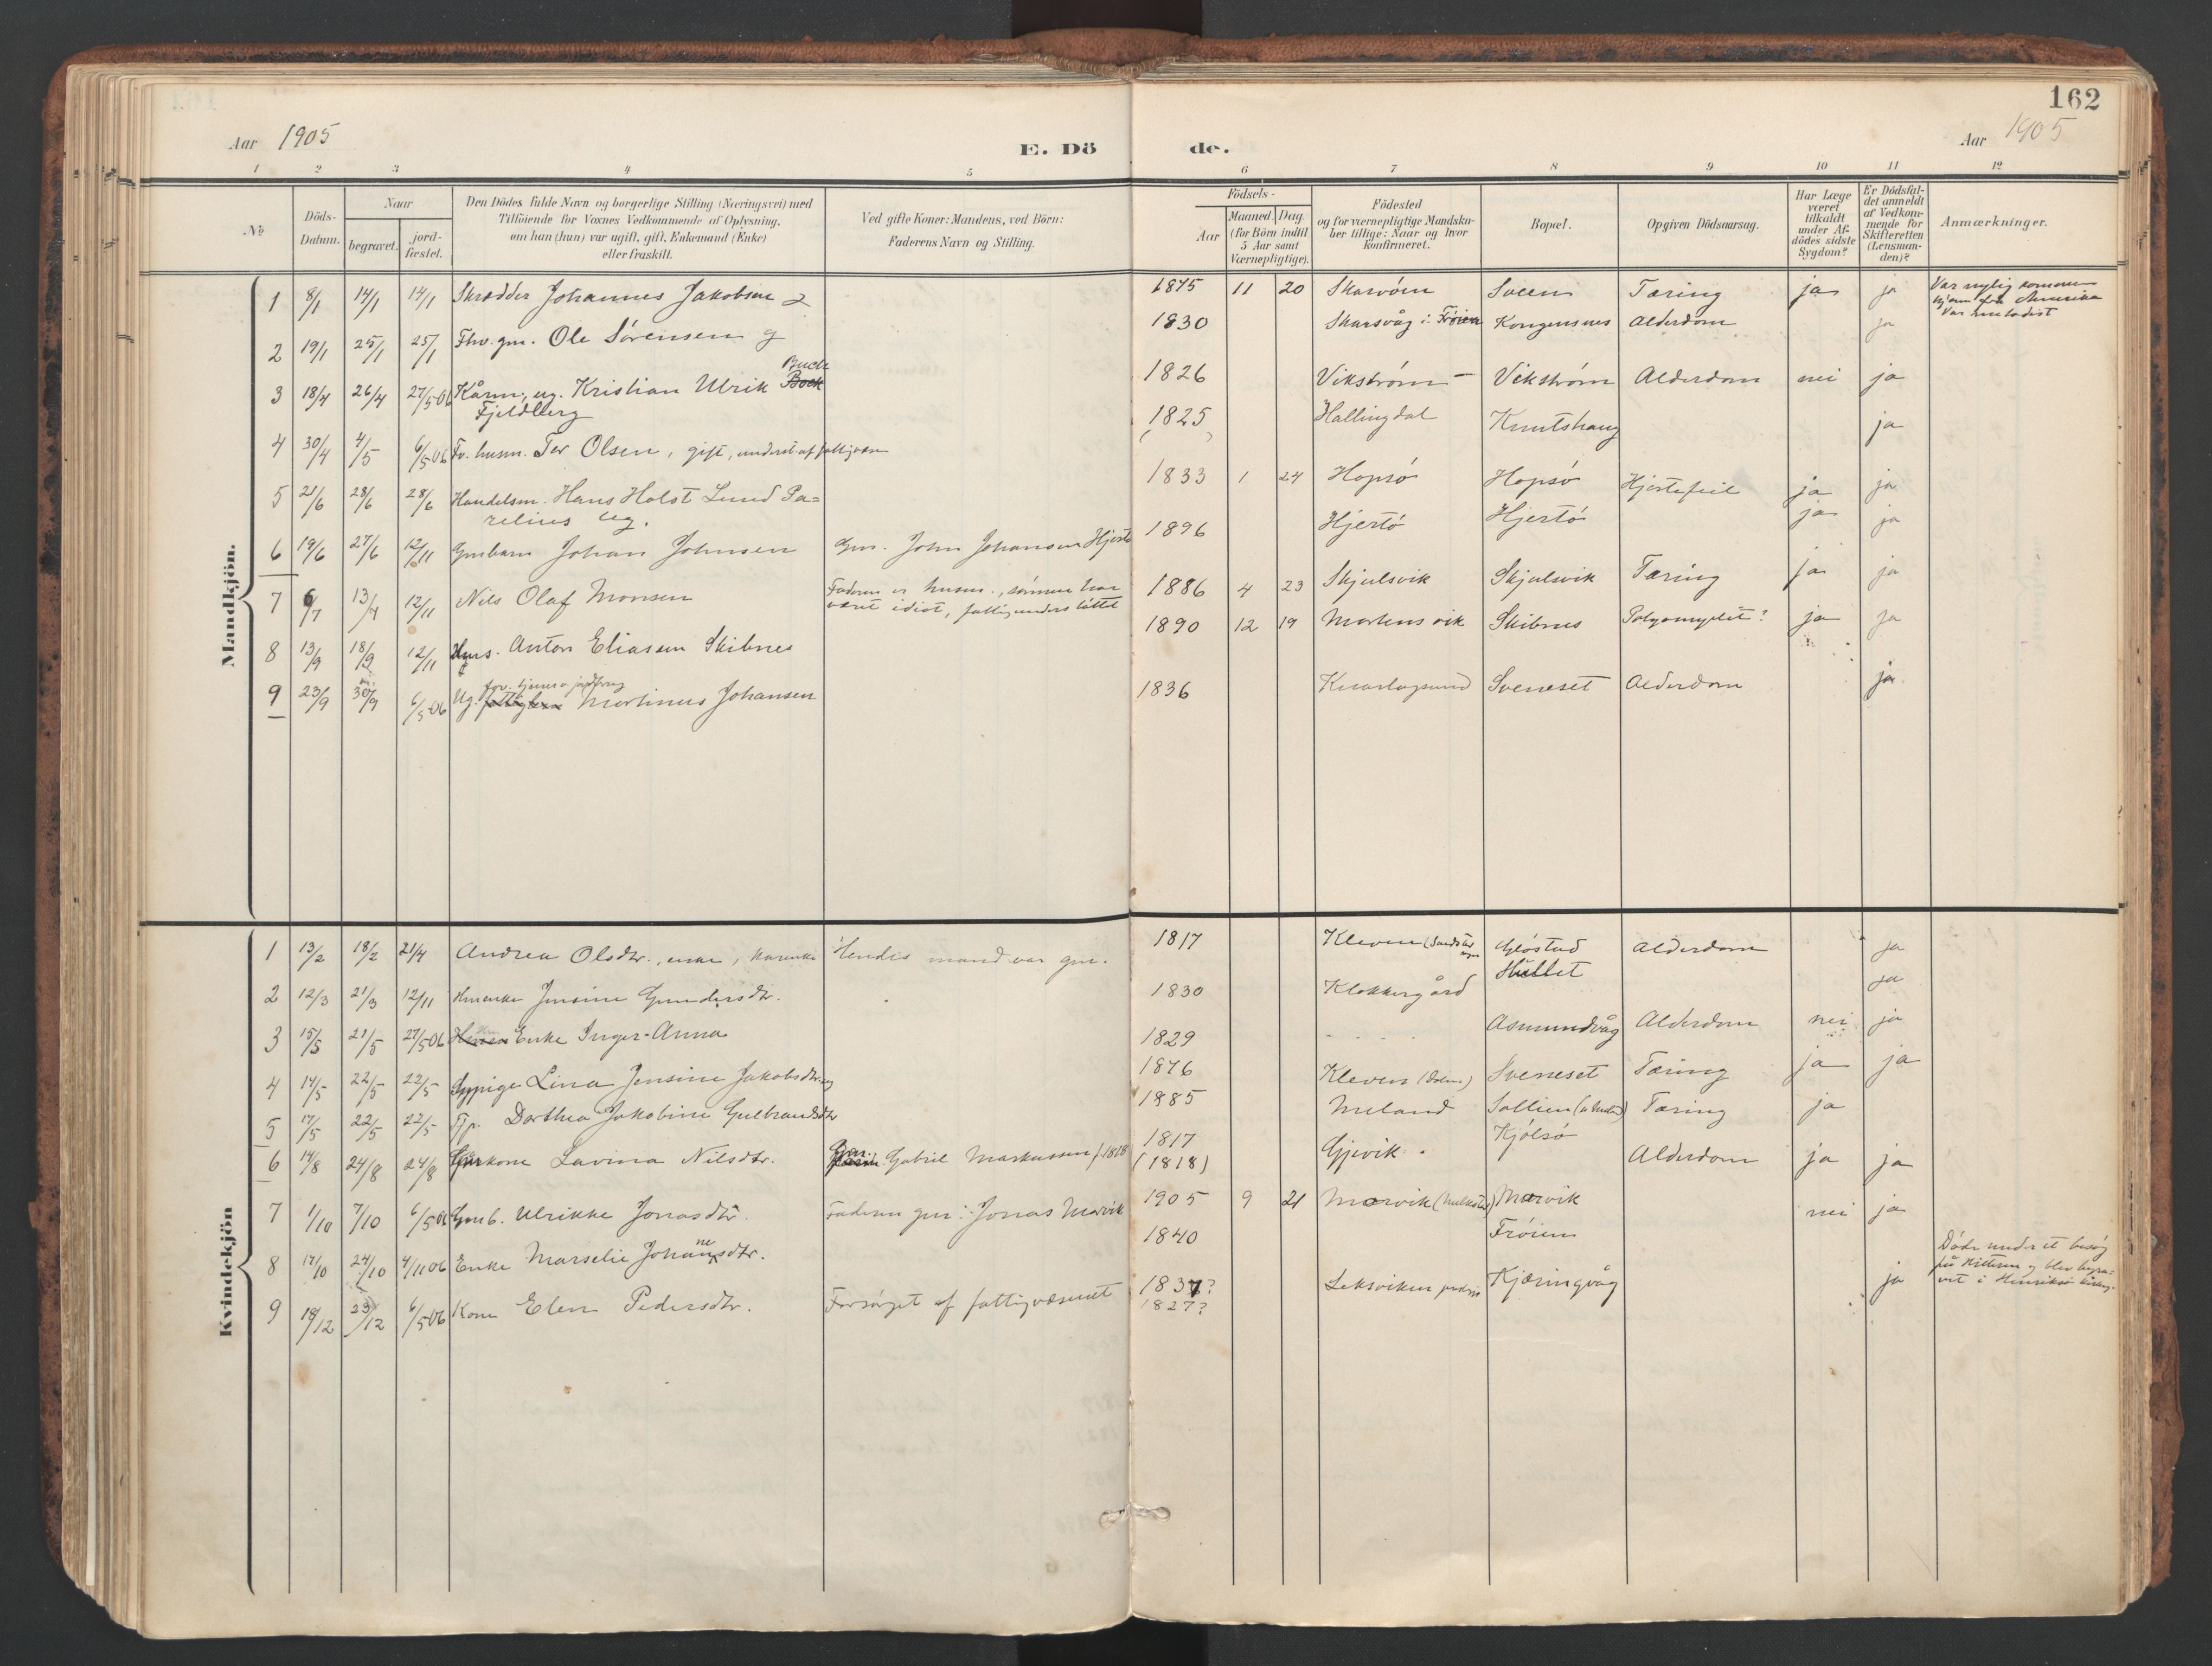 162
Aar 1905
E. Dö
de.
Aar 1905
1 2 3 4 5 6 7 8 9 10 11 12
№
Döds-
Datum.
Naar
begravet.
jord-
fæstet.
Den Dödes fulde Navn og borgerlige Stilling (Næringsvei) med
Tilföiende for Voxnes Vedkommende af Oplysning,
om han (hun) var ugift, gift, Enkemand (Enke)
eller fraskilt.
Ved gifte Koner: Mandens, ved Börn:
Faderens Navn og Stilling.
Födsels-
Aar
Maaned. Dag.
(for Börn indtil
5 Aar samt
Værnepligtige).
Födested
og for værnepligtige Mandska-
ber tillige: Naar og hvor
konfirmeret.
Bopæl.
Opgiven Dödsaarsag.
Har Læge
været
tilkaldt
under Af-
dödes sidste
Sygdom?
Er Dödsfal-
det anmeldt
af Vedkom-
mende for
Skifteretten
(Lensman-
den)?
Anmærkninger.
Mandkjön.
1 8/1 14/1 14/1 Skrædder Johannes Jakobsen 1875 11 20 Skarvøen Sveen Tæring ja ja Var nylig kommen
hjem fra Amerika
Var metodist
2 19/1 25/1 25/1 Fhv. gm. Ole Sørensen g 1830 Skarsvåg i Frøien Kongensnes Alderdom ja
3 18/4 26/4 27/5 06 Kårm, ug. Kristian Ulrik Buck Bock 1826 Vikstrøm Vikstrøm Alderdom nei ja
Fjeldberg
4 30/4 4/5 6/5 06 Fv. husm. Per Olsen, gift, underst. af fattigvæs 1825 Hallingdal Knutshaug ja
5 21/6 28/6 28/6 Handelsm. Hans Holst Lund Pa=
relius ug. 1833 1 24 Hopsø Hopsø Hjertefeil ja ja
6 19/6 27/6 12/11 Gmbarn Johan Johnsen Gm. John Johansen Hjertø 1896 Hjertø Hjertø ja ja
7 6/7 13/7 12/11 Nils Olaf Monsen Faderen er husm., sønnen har
været idiot, fattigunderstøttet 1886 4 23 Skjulsvik Skjulsvik Tæring ja ja
8 13/9 18/9 12/11 Hms. Anton Eliasen Skibnes 1890 12 19 Mortensvik Skibnes Polyomyelit? ja ja
9 23/9 30/9 6/5 06 Ug. Martinus Johansen 1836 Sveneset Alderdom ja
Kvindekjön
1 13/2 18/2 21/4 Andrea Olsdtr., enke, Hendes mand var gm. 1817 Kleven Gløstad Alderdom ja
2 12/3 21/3 12/11 Hmenke Jensine Gundersdtr. 1830 Klokkergård Hallet ja
3 15/5 21/5 27/5 06 Enke Inger-Anna 1829 Asmundvåg Alderdom nei ja
4 14/5 22/5 22/5 Sypige Lina Jensine Jakobsdtr. ug 1876 Kleven (Dolm.) Sveneset Tæring ja ja
5 17/5 22/5 22/5 Tjp. Dorthea Jakobine Gulbrandsdtr 1885 Meland Sollien Tæring ja
6 14/8 24/8 24/8 Gmkone Lavina Nilsdtr. Gm. Gabriel Markussen f 1818 1817
(1818) Gjevik Kjølsø Alderdom ja ja
7 1/10 7/10 6/5 06 Gmb. Ulrikke Jonasdtr Faderen gm: Jonas Mærvik 1905 9 21 Mærvik Mærvik nei ja
8 17/10 24/10 4/11 06 Enke Marselie Johannesdtr. 1840 Frøien Døde under et besøg
på Hitteren og blev begra-
vet i
9 18/12 23/12 6/5 06 Kone Elen Pedersdtr. Forsørget af fattigvæsenet 1837?
1827? Leksviken Kjæringvåg ja